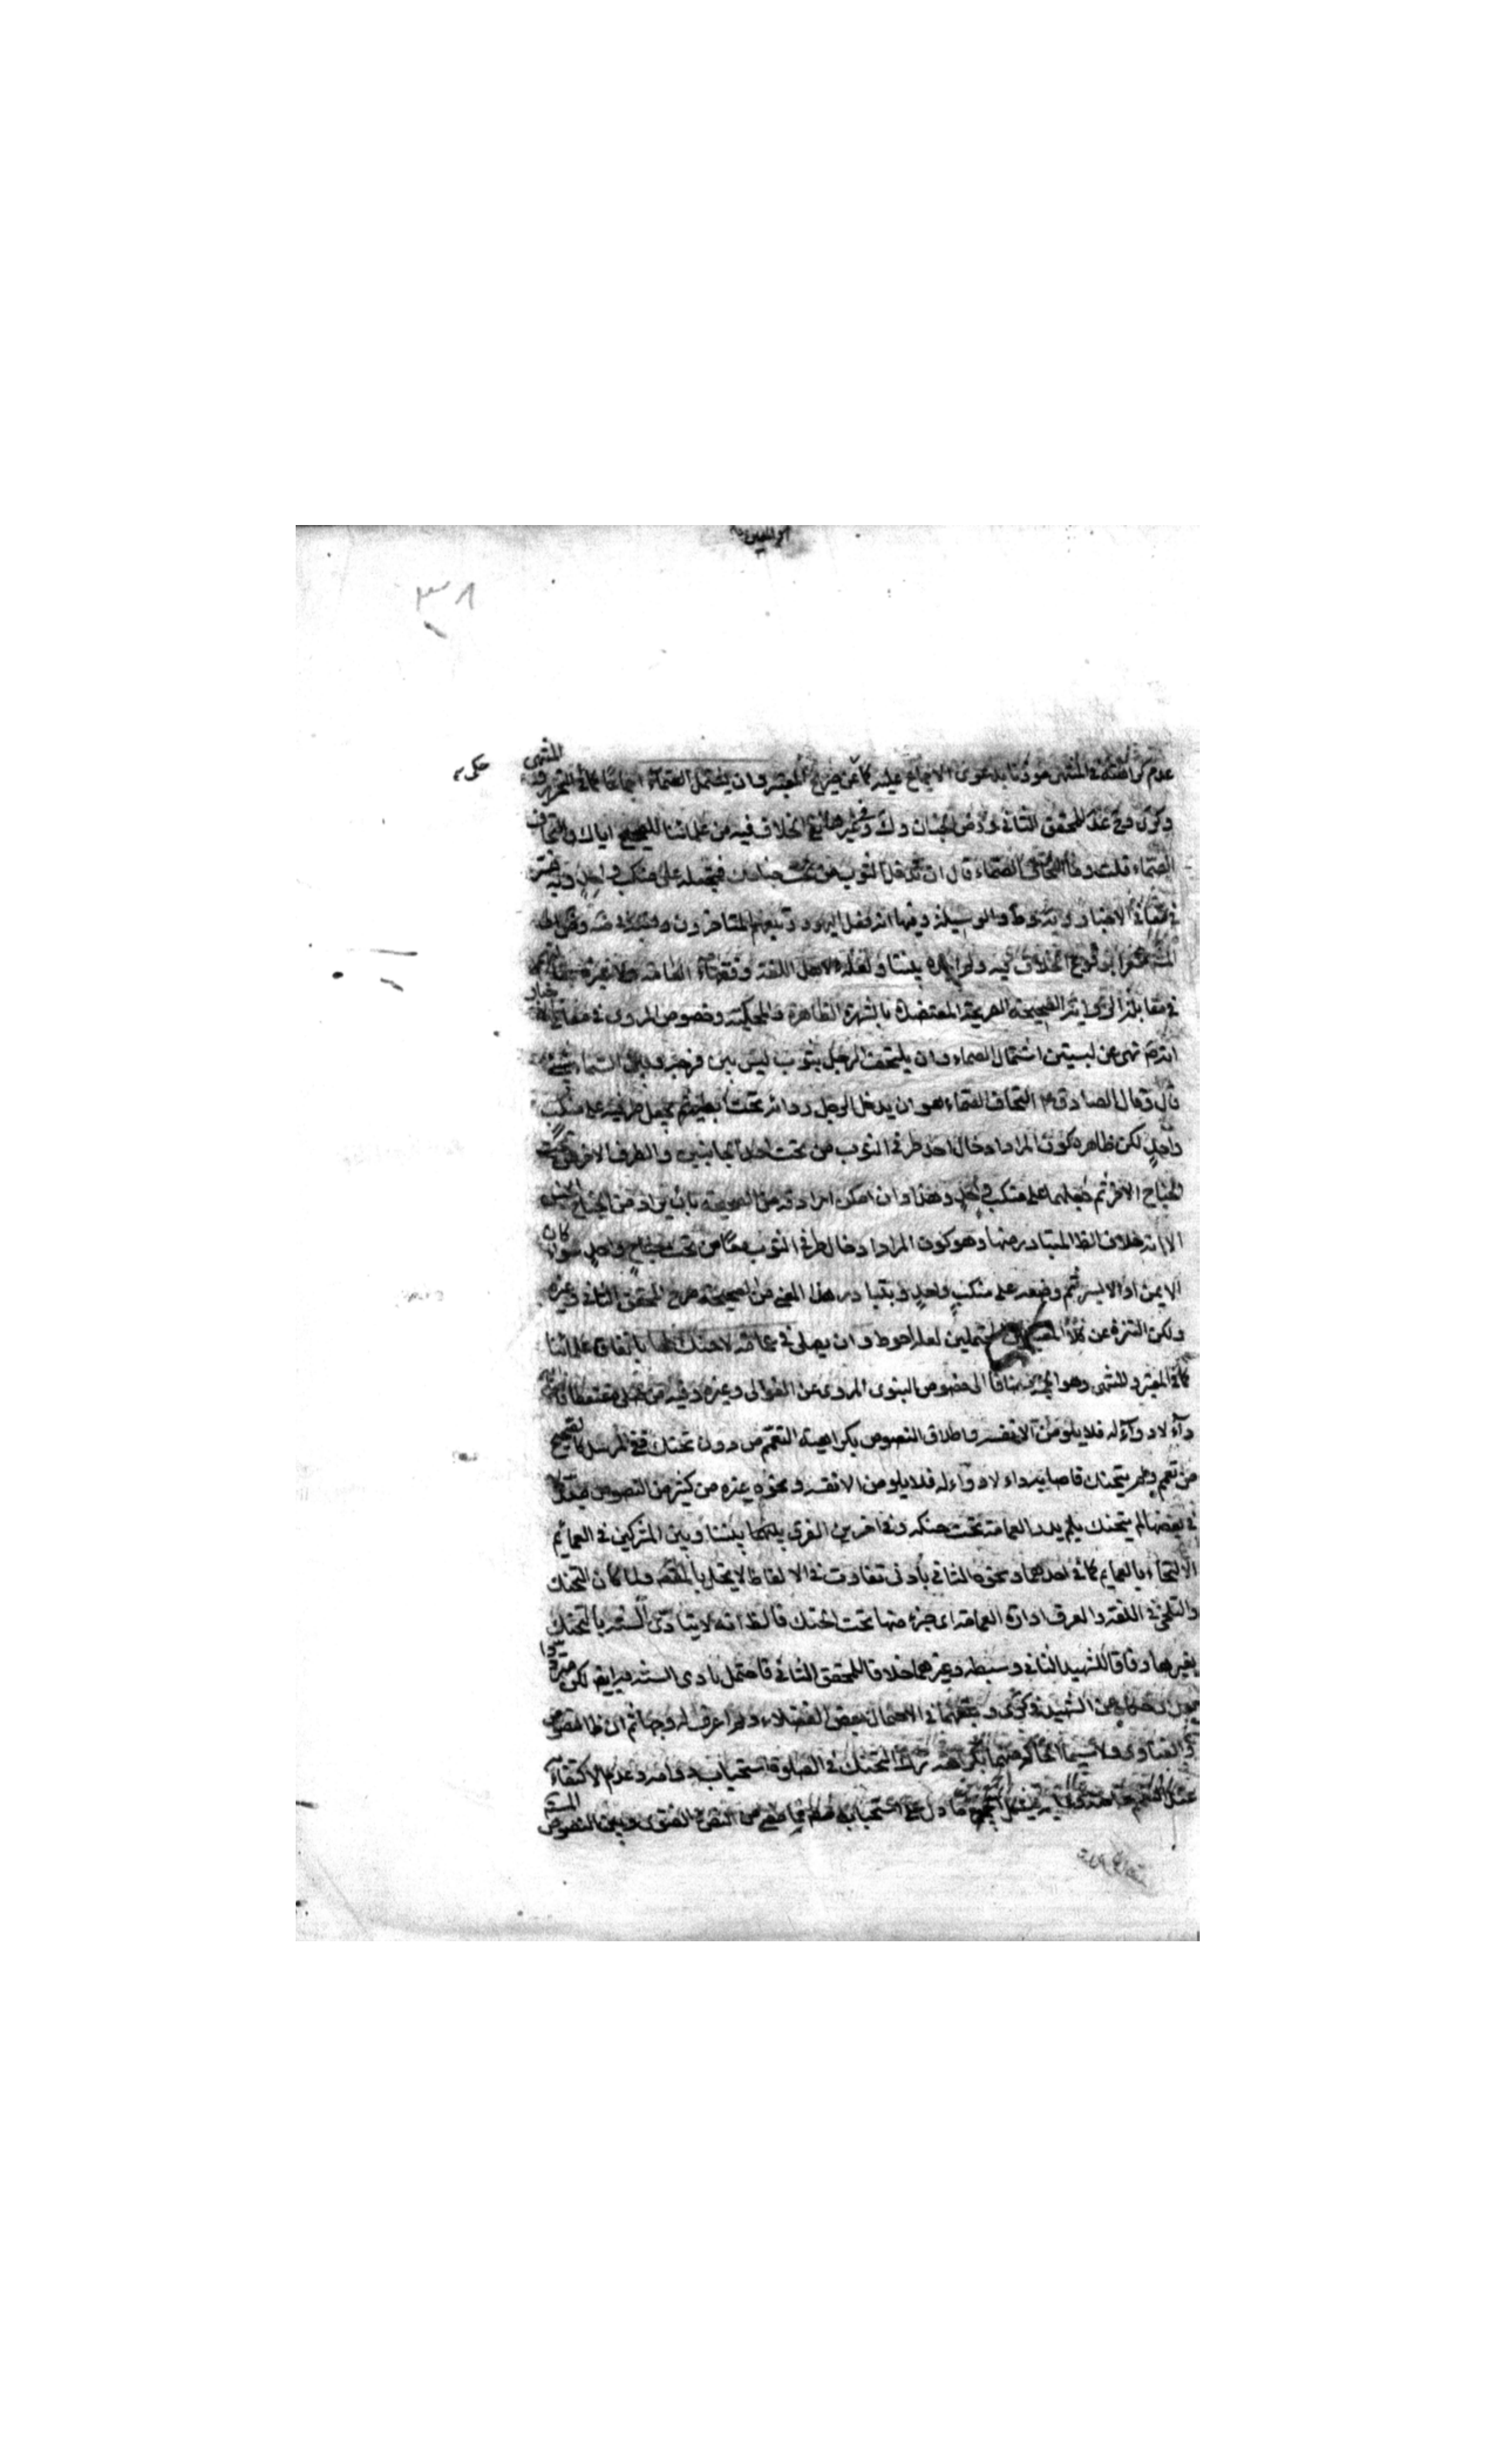 ٣٨
عدم كراهته في المنتهى مؤذنا بدعوى الاجماع عليه كما عن صريح المعتبر وان يشتمل الصماء اجماعا كما في التحرير
وكرى وعن المحقق الثاني وروض الجنان وك وفي غيرها نفي الخلاف فيه من علمائنا للصحيح اياك والتحاف
الصماء قلت وما التحاف الصماء قال ان تدخل الثوب من تحت جناحك فتجعله على منكب واحد وبه فسر
في معاني الاخبار وية وط والوسيلة وفيها انه فعل اليهود وتبعهم المتاخرون
بوقوع الخلاف فيه ولم اره بيننا ولعله لاهل اللغة وفقهاء العامة ولا عبرة بهما
في مقابلة الرواية الصحيحة الصريحة المعتضدة بالشهرة الظاهرة والمحكية وخصوص المروي في معاني الاخبار
انه ص نهى عن لبستين اشتمال الصماء وان يلتحف الرجل بثوب ليس بين فرجه وبين السماء شيء
قال وقال الصادق ع التحاف الصماء هو ان يدخل الرجل ردائه تحت ابطه ثم يجعل طرفيه على منكب
واحد لكن ظاهره كون المراد ادخال احد طرفي الثوب من تحت احد الجانبين والطرف الاخر من تحت
الجناح الاخر ثم جعلهما على منكب واحد وهذا وان امكن ارادته من الصحيحة بان يراد من الجناح الجنس
الا انه خلاف الظ المتبادر منها وهو كون المراد ادخال طرفي الثوب معا من تحت جناح واحد سواء كان
الايمن او الايسر ثم وضعه على منكب واحد وبتبادر هذا المعنى من الصحيحة صرح المحقق الثاني وغيره
ولكن التنزه عن كلا المحتملين لعله احوط وان يصلي في عمامة لا حنك لها باتفاق علمائنا
كما في المعتبر والمنتهى وهو الحجة مضافا الى خصوص النبوي المروي عن الغوالي وغيره وفيه من صلى مقتعطا فاصابه
داء لا دواء له فلا يلومن الا نفسه واطلاق النصوص بكراهية التعمم من دون تحنك ففي المرسل كالصحيح
من تعمم ولم يتحنك فاصابه داء لا دواء له فلا يلومن الا نفسه ونحوه غيره من كثير من النصوص مبدلا
في بعضها لم يتحنك بلم يدر العمامة تحت حنكه وفي اخرين الفرق بيننا وبين المشركين في العمائم
الالتحاء بالعمايم كما في احدهما ونحوه الثاني بادنى تفاوت في الالفاظ لا يخل بالمقصد ولما كان التحنك
والتلحي في اللغة والعرف ادارة العمامة اي جزء منها تحت الحنك فالظ انه لا يتادى السنة بالتحنك
بغيرها وفاقا للشهيد الثاني وسبطه وغيرهما خلافا للمحقق الثاني فاحتمل تادي السنة به ايضا لكن مترددا
عن الشهيد في كرى وتبعهما في الاحتمال بعض الفضلاء ولم اعرف له وجها ثم ان ظ النصوص
والفتاوى ولا سيما الحاكم منهما بكراهة ترك التحنك في الصلوة استحباب دوامه وعدم الاكتفاء
من النص والفتوى وبين النصوص